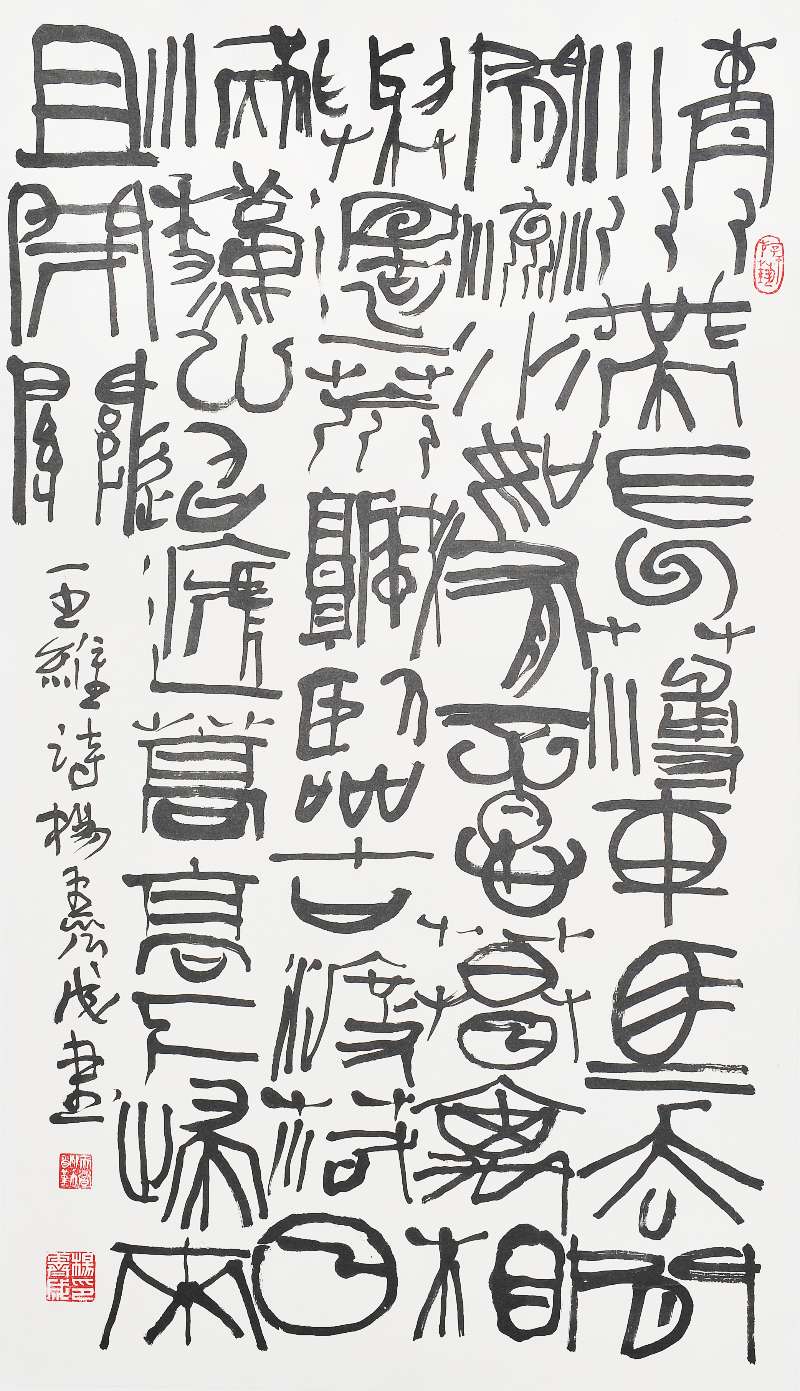 清川帶長薄車馬去閒
閒流水如有意暮禽相
與還荒城臨古渡落日
滿秋山迢遞嵩高下歸來
且閉關
王維詩楊